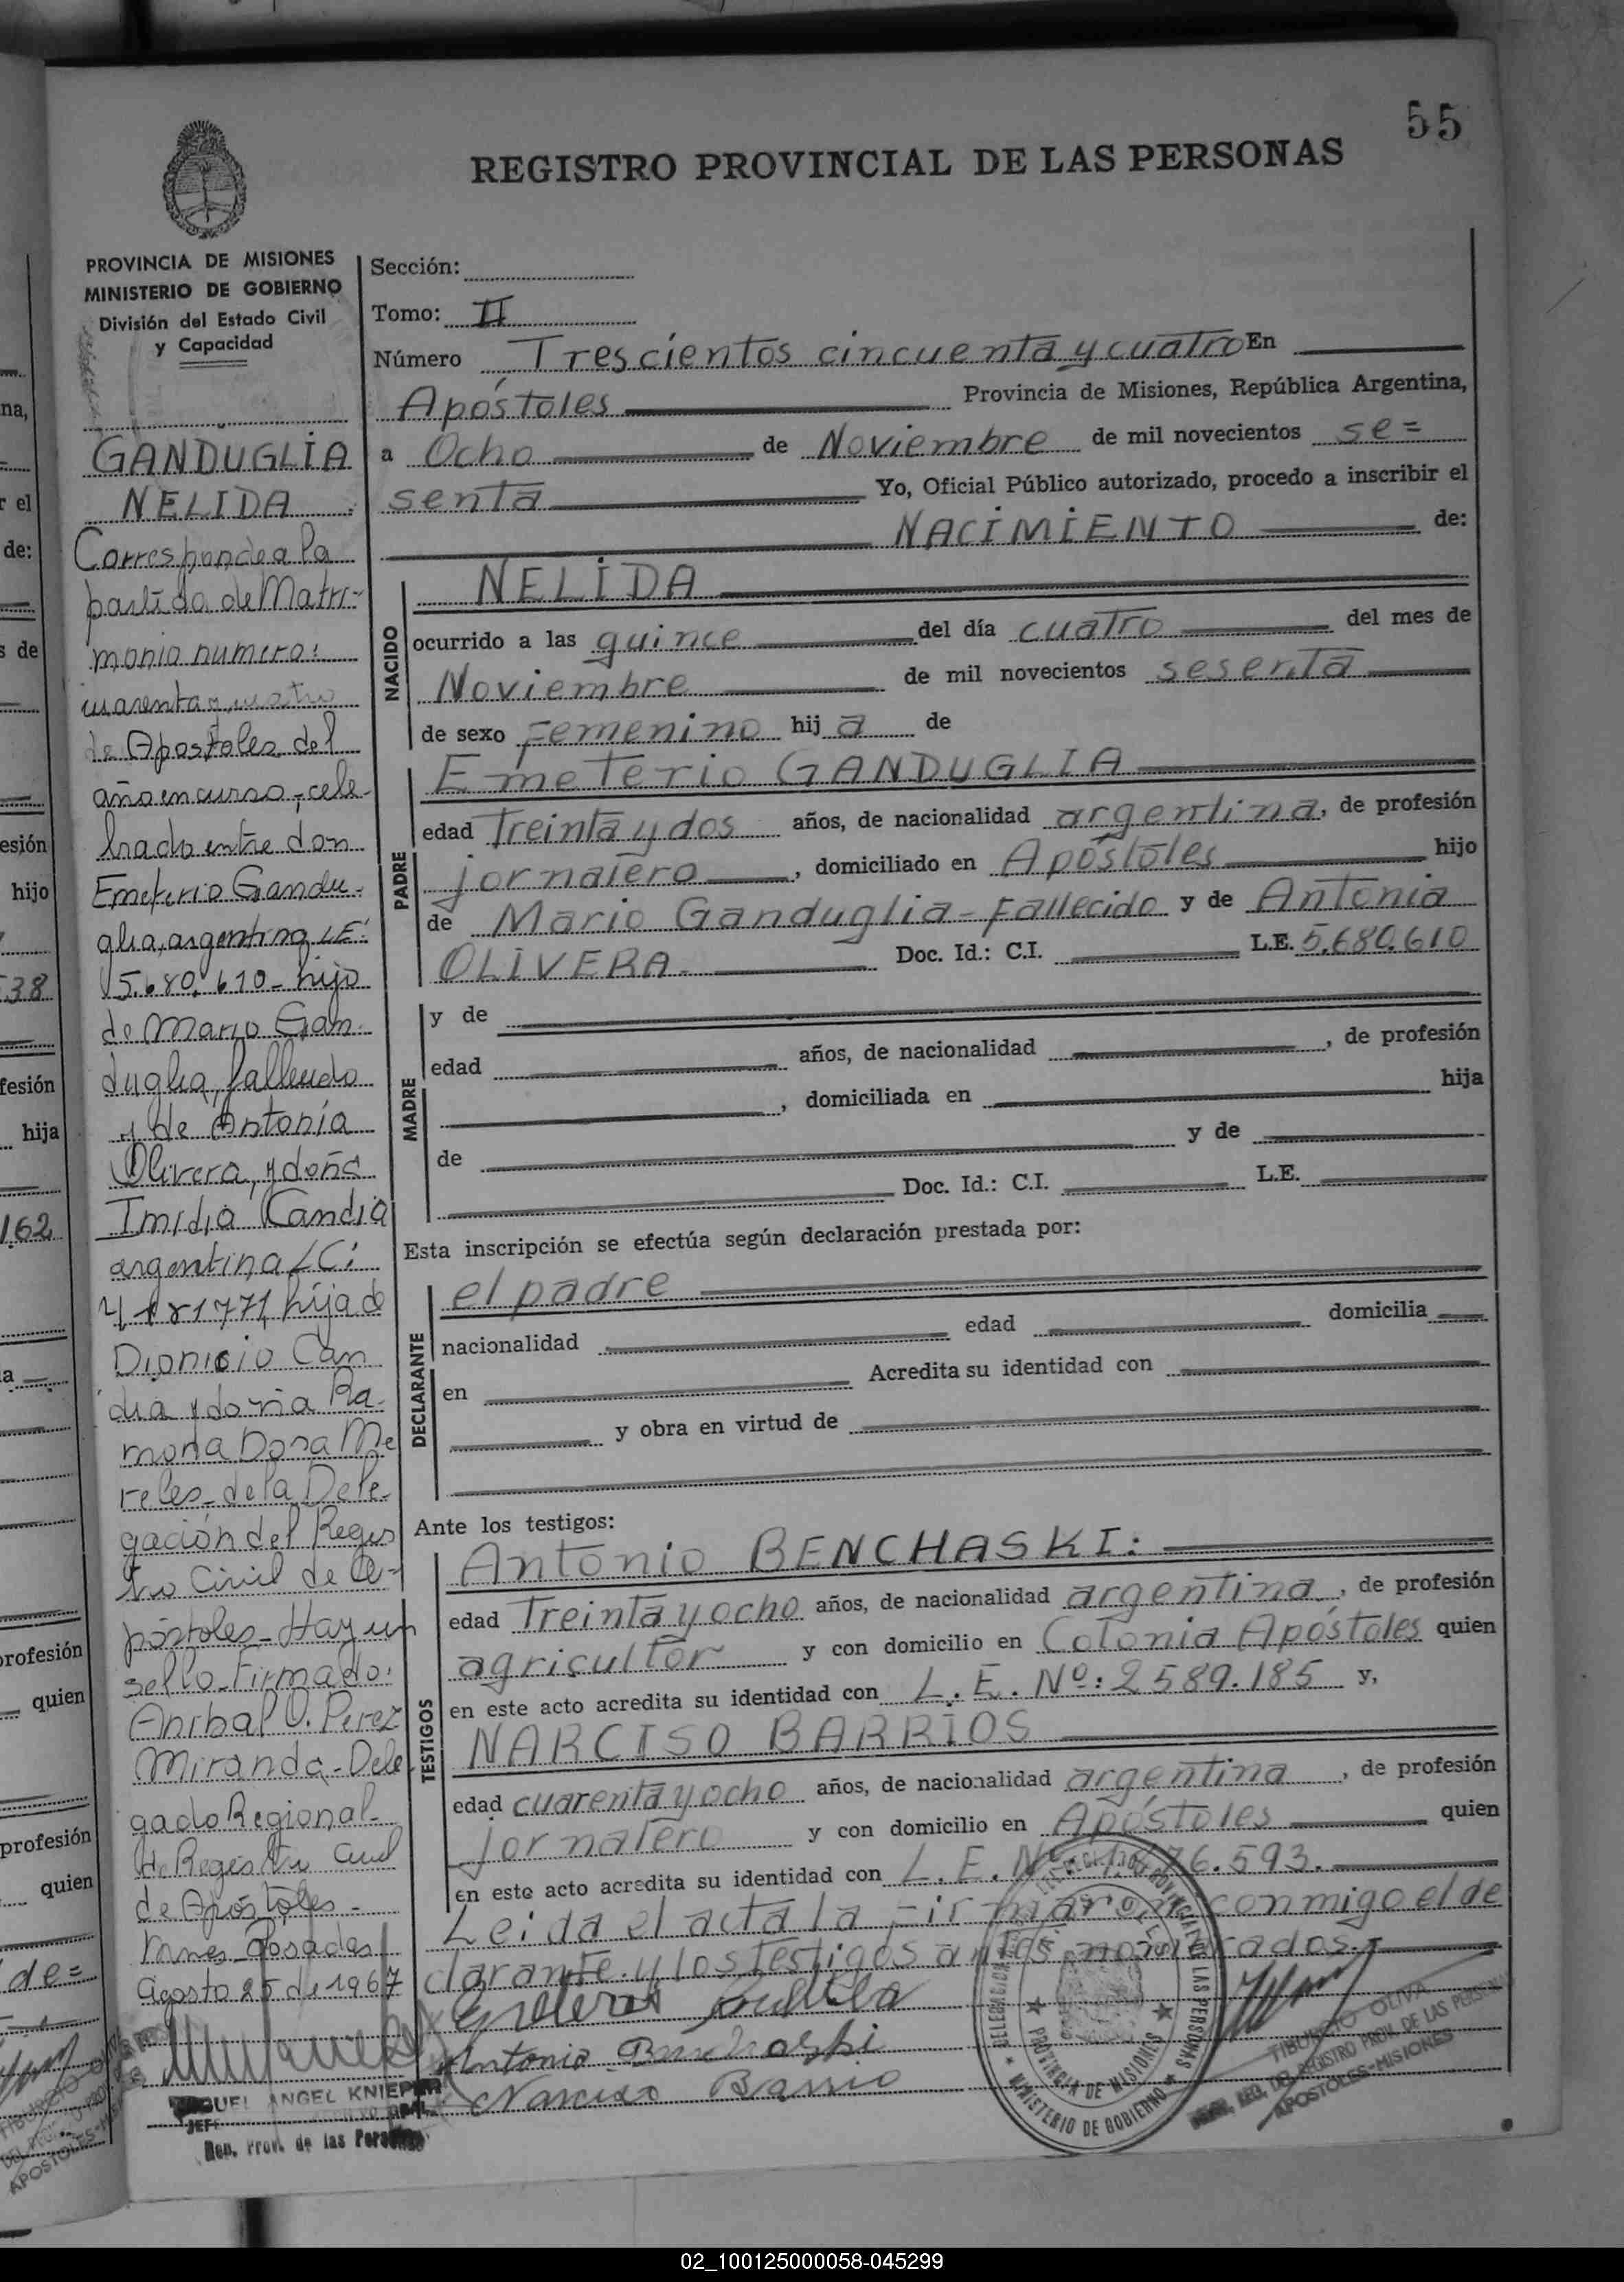 55
REGISTRO PROVINCIAL DE LAS PERSONAS
PROVINCIA DE MISIONES
MINISTERIO DE GOBIERNO
División del Estado Civil
y Capacidad
GANDUGLIA
NELIDA
Corresponde a la
partida de Matri-
monio numero:
cuarenta y cuatro
de Apostoles del
año en curso, cele-
brado entre don
Emeterio Gandu-
glia, argentino LE:
5.680.610 - hijo
de Mario Gan-
duglia, fallecido
y de Antonía
Olivera, y doña
Imidia Candia
argentina LC:
hija de
Dionicio Can
dia y doña Ra-
mona Dora Me
reles - de la Dele-
gación del Regis
tro Civil de A-
póstoles - Hay un
sello - Firmado:
Anibal O. Perez
Miranda - Dele
gado Regional -
de Registro Civil
de Apóstoles -
Mnes - Posadas
Agosto 25 de 1967
MIGUEL ANGEL KNIEPER
JEF
Reg. Prov. de las Personas
Sección:
Tomo: II
Número Trescientos cincuenta y cuatro En
Apóstoles Provincia de Misiones, República Argentina,
a Ocho de Noviembre de mil novecientos se=
senta Yo, Oficial Público autorizado, procedo a inscribir el
NACIMIENTO de:
NACIDO
NELIDA
ocurrido a las quince del día cuatro del mes de
Noviembre de mil novecientos sesenta
de sexo Femenino hij a de
PADRE
Emeterio GANDUGLIA
edad Treinta y dos años, de nacionalidad argentina, de profesión
jornalero, domiciliado en Apóstoles hijo
de Mario Ganduglia - Fallecido y de Antonia
OLIVERA. Doc. Id.: C.I. L.E. 5.680.610
MADRE
y de
edad años, de nacionalidad , de profesión
, domiciliada en hija
de y de
Doc. Id.: C.I. L.E.
Esta inscripción se efectúa según declaración prestada por:
DECLARANTE
el padre
nacionalidad edad domicilia
en Acredita su identidad con
y obra en virtud de
Ante los testigos:
TESTIGOS
Antonio BENCHASKI:
edad Treinta y ocho años, de nacionalidad argentina, de profesión
agricultor y con domicilio en Colonia Apóstoles quien
en este acto acredita su identidad con L.E. Nº: 2589.185 y,
NARCISO BARRIOS
edad cuarenta y ocho años, de nacionalidad argentina, de profesión
jornalero y con domicilio en Apóstoles quien
en este acto acredita su identidad con L.E. Nº 76.593.
Leida el acta la Firmaron conmigo el de
clarante y los Testigos antes nombrados.
Antonio Benchaski
Narciso Barrio
PROVINCIA DE MISIONES
MINISTERIO DE GOBIERNO
TIBURCIO OLIVA
DEL REGISTRO PROV. DE LAS PERSON
APOSTOLES-MISIONES
02_100125000058-045299